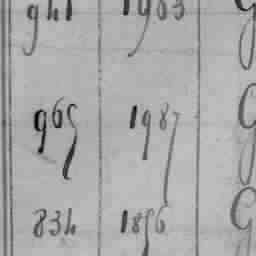 941 1963 G
965 1987 G
834 1856 G